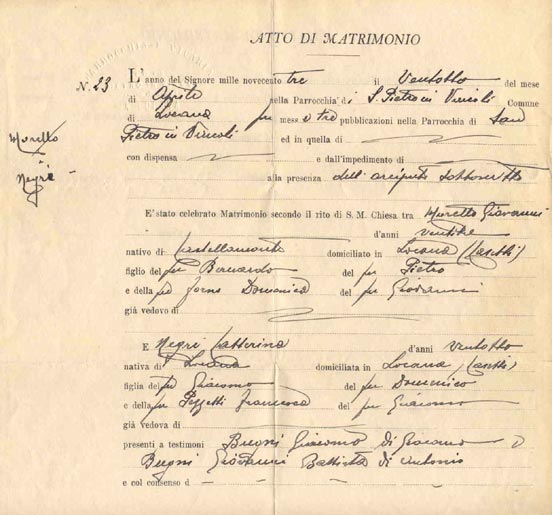 ATTO DI MATRIMONIO
N. 23 L'anno del Signore mille novecento tre il Ventotto del mese
di Agosto nella Parrocchia di S. Pietro in Vincoli Comune
di Locana mess e tre pubblicazioni nella Parrocchia di San
Pietro in Vincoli ed in quella di
con dispensa e dall'impedimento di
alla presenza dell'arciprete sottoscritto
Moretto
e
Negri
E' stato celebrato Matrimonio secondo il rito di S. M. Chiesa tra Moretto Giovanni
d'anni ventitre
nativo di Castellamonte domiciliato in Locana
figlio del fu Bernardo del fu Pietro
e della fu Domenica del fu Giovanni
già vedovo di
E Negri Catterina d'anni ventotto
nativa di Locana domiciliata in Locana
figlia del fu Giacomo del fu Domenico
e della fu Pezzetti Francesca del fu Giacomo
già vedova di
presenti a testimoni Bugni Giacomo di Giacomo e
Bugni Giovanni Battista di Antonio
e col consenso d